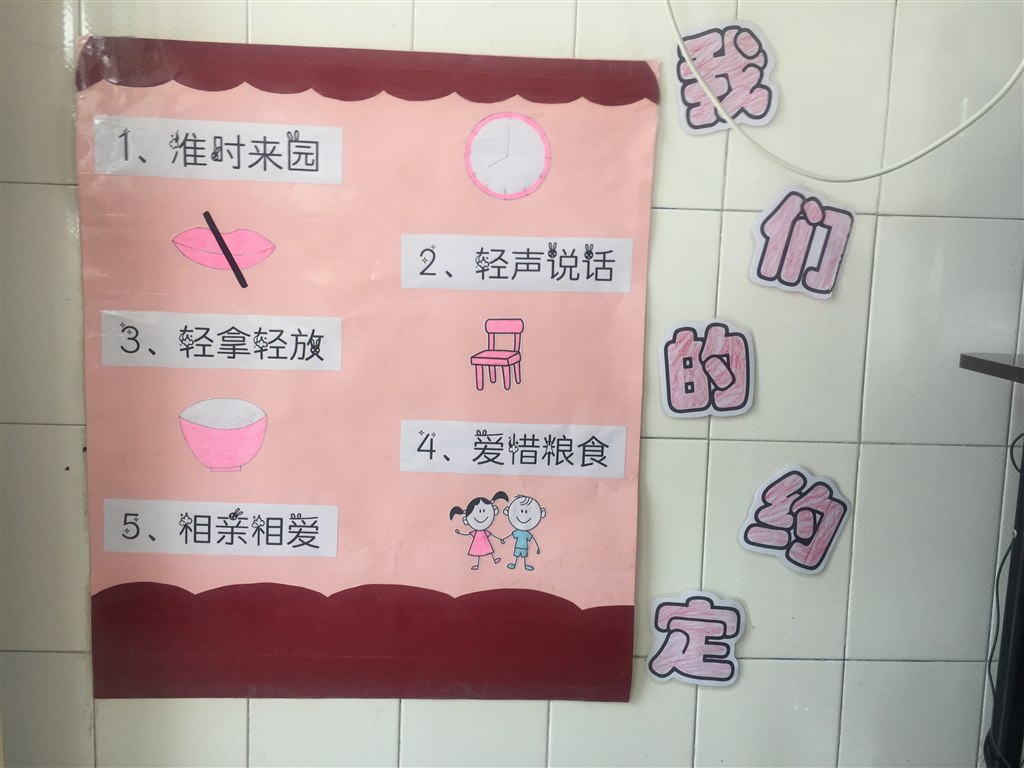 我们的约定
1、准时来园
2、轻声说话
3、轻拿轻放
4、爱惜粮食
5、相亲相爱